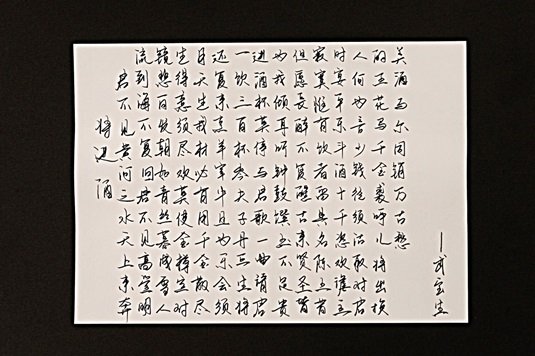 将进酒
君不见黄河之水天上来奔
流到海不复回君不见高堂明
镜悲白发朝如青丝暮成雪人
生得意须尽欢莫使金樽空对
月天生我材必有用千金散尽
还复来烹羊宰牛且为乐会须
一饮三百杯岑夫子丹丘生将
进酒杯莫停与君歌一曲请君
为我倾耳听钟鼓馔玉不足贵
但愿长醉不复醒古来贤圣皆
寂寞惟有饮者留其名陈王昔
时宴平乐斗酒十千恣欢谑主
人何为言少钱径须沽取对君
酌五花马千金裘呼儿将出换
美酒与尔同销万古愁
——武宝生